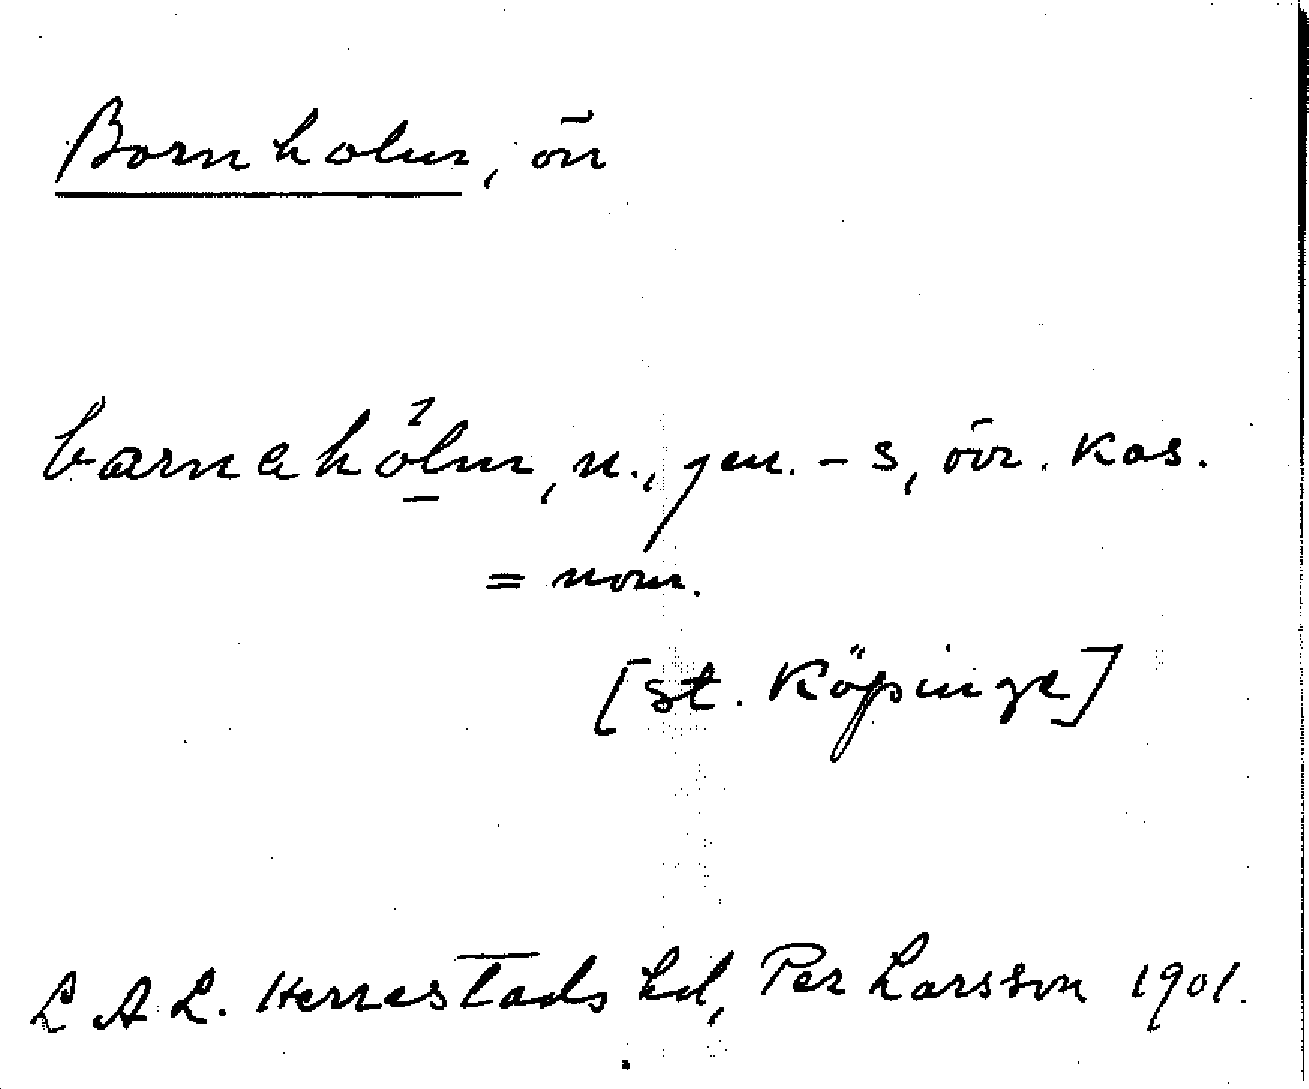 Bornholm, ön
barnəhö²lm, n., gen. -s, övr. kas.
= nom.
[St. Köpinge]
L A L. Herrestads hd, Per Larsson 1901.